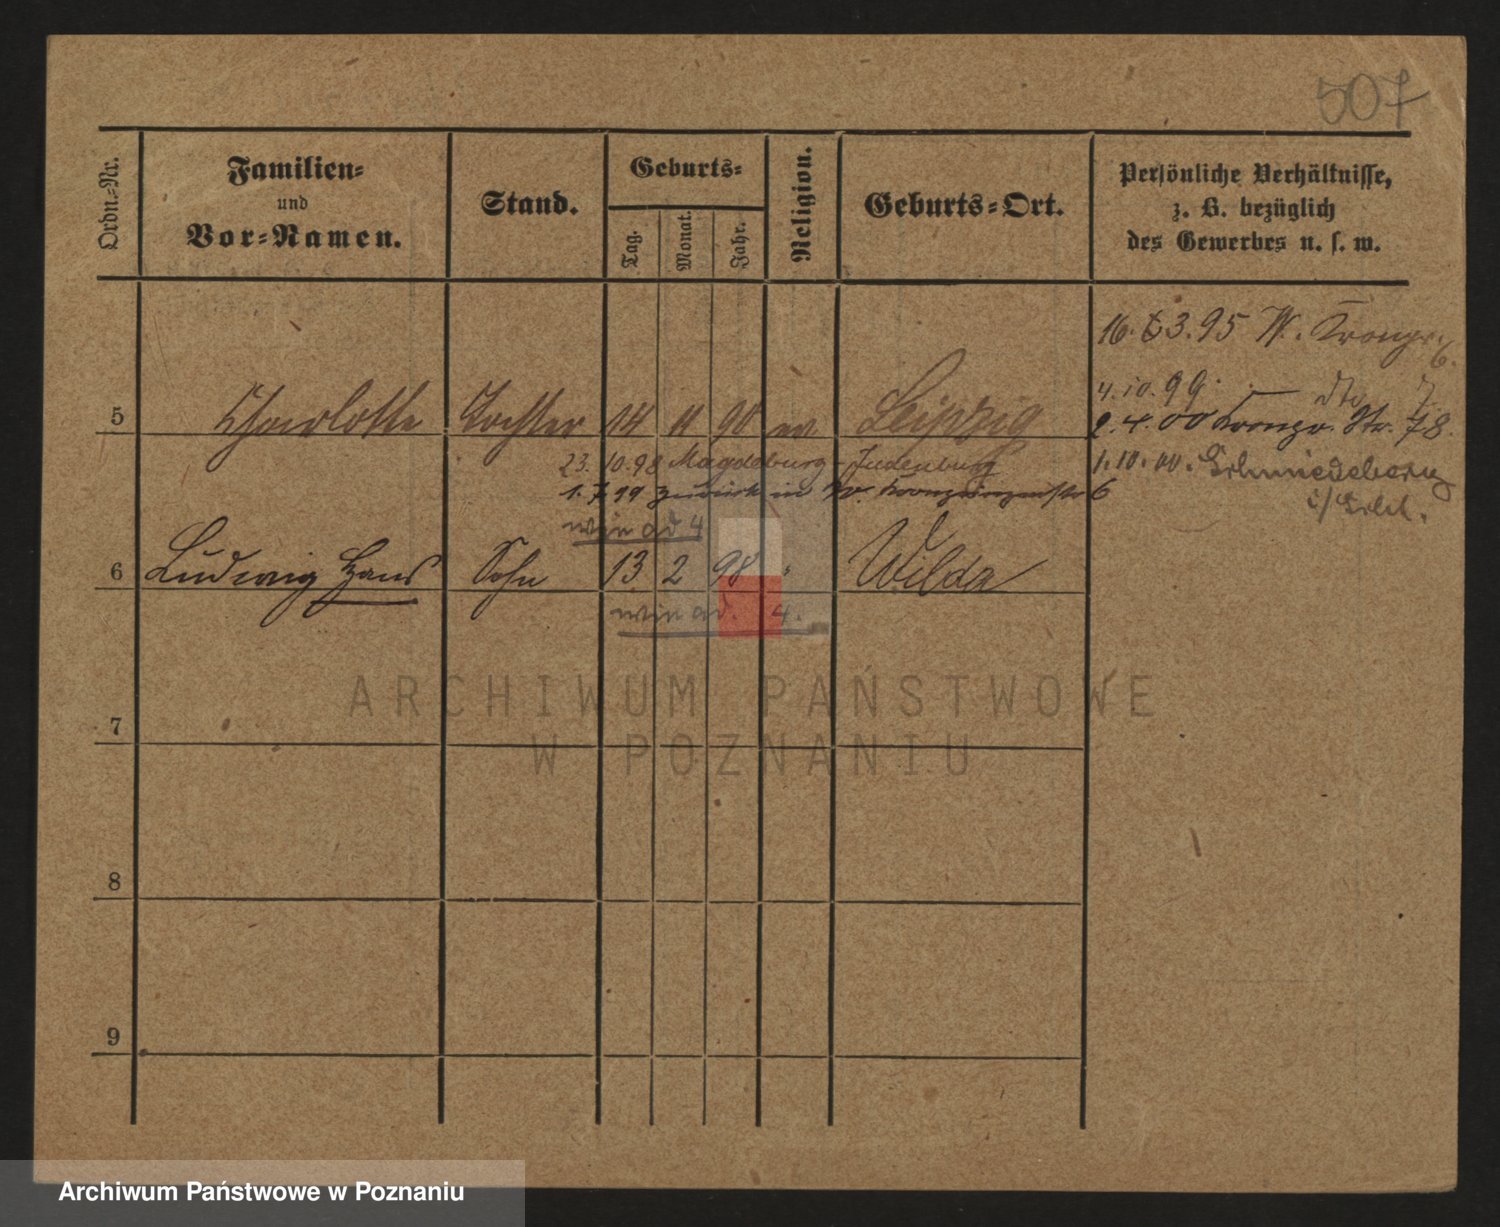 507
Ordn.-Nr.
Familien-
und
Vor-Namen.
Stand.
Geburts-
Tag.
Monat.
Jahr.
Religion.
Geburts-Ort.
Persönliche Verhältnisse,
z. B. bezüglich
des Gewerbes u. s. w.
16. 3. 95 W. Kronpr. 6.
4. 10. 99. — dto 7
5 Charlotte Tochter 14 11 90 ev Leipzig
2. 4. 00 Kronpr. Str. 78.
23. 10. 98 Magdeburg-
1. 7. 99 zurück in W. Kronprinzenstr 6
1. 10. 00. Schmiedeberg
i/ Schl.
wie ad 4
6 Ludwig Hans Sohn 13 2 98 " Wilda
wie ad. 4.
ARCHIWUM PAŃSTWOWE
W POZNANIU
7
8
9
Archiwum Państwowe w Poznaniu